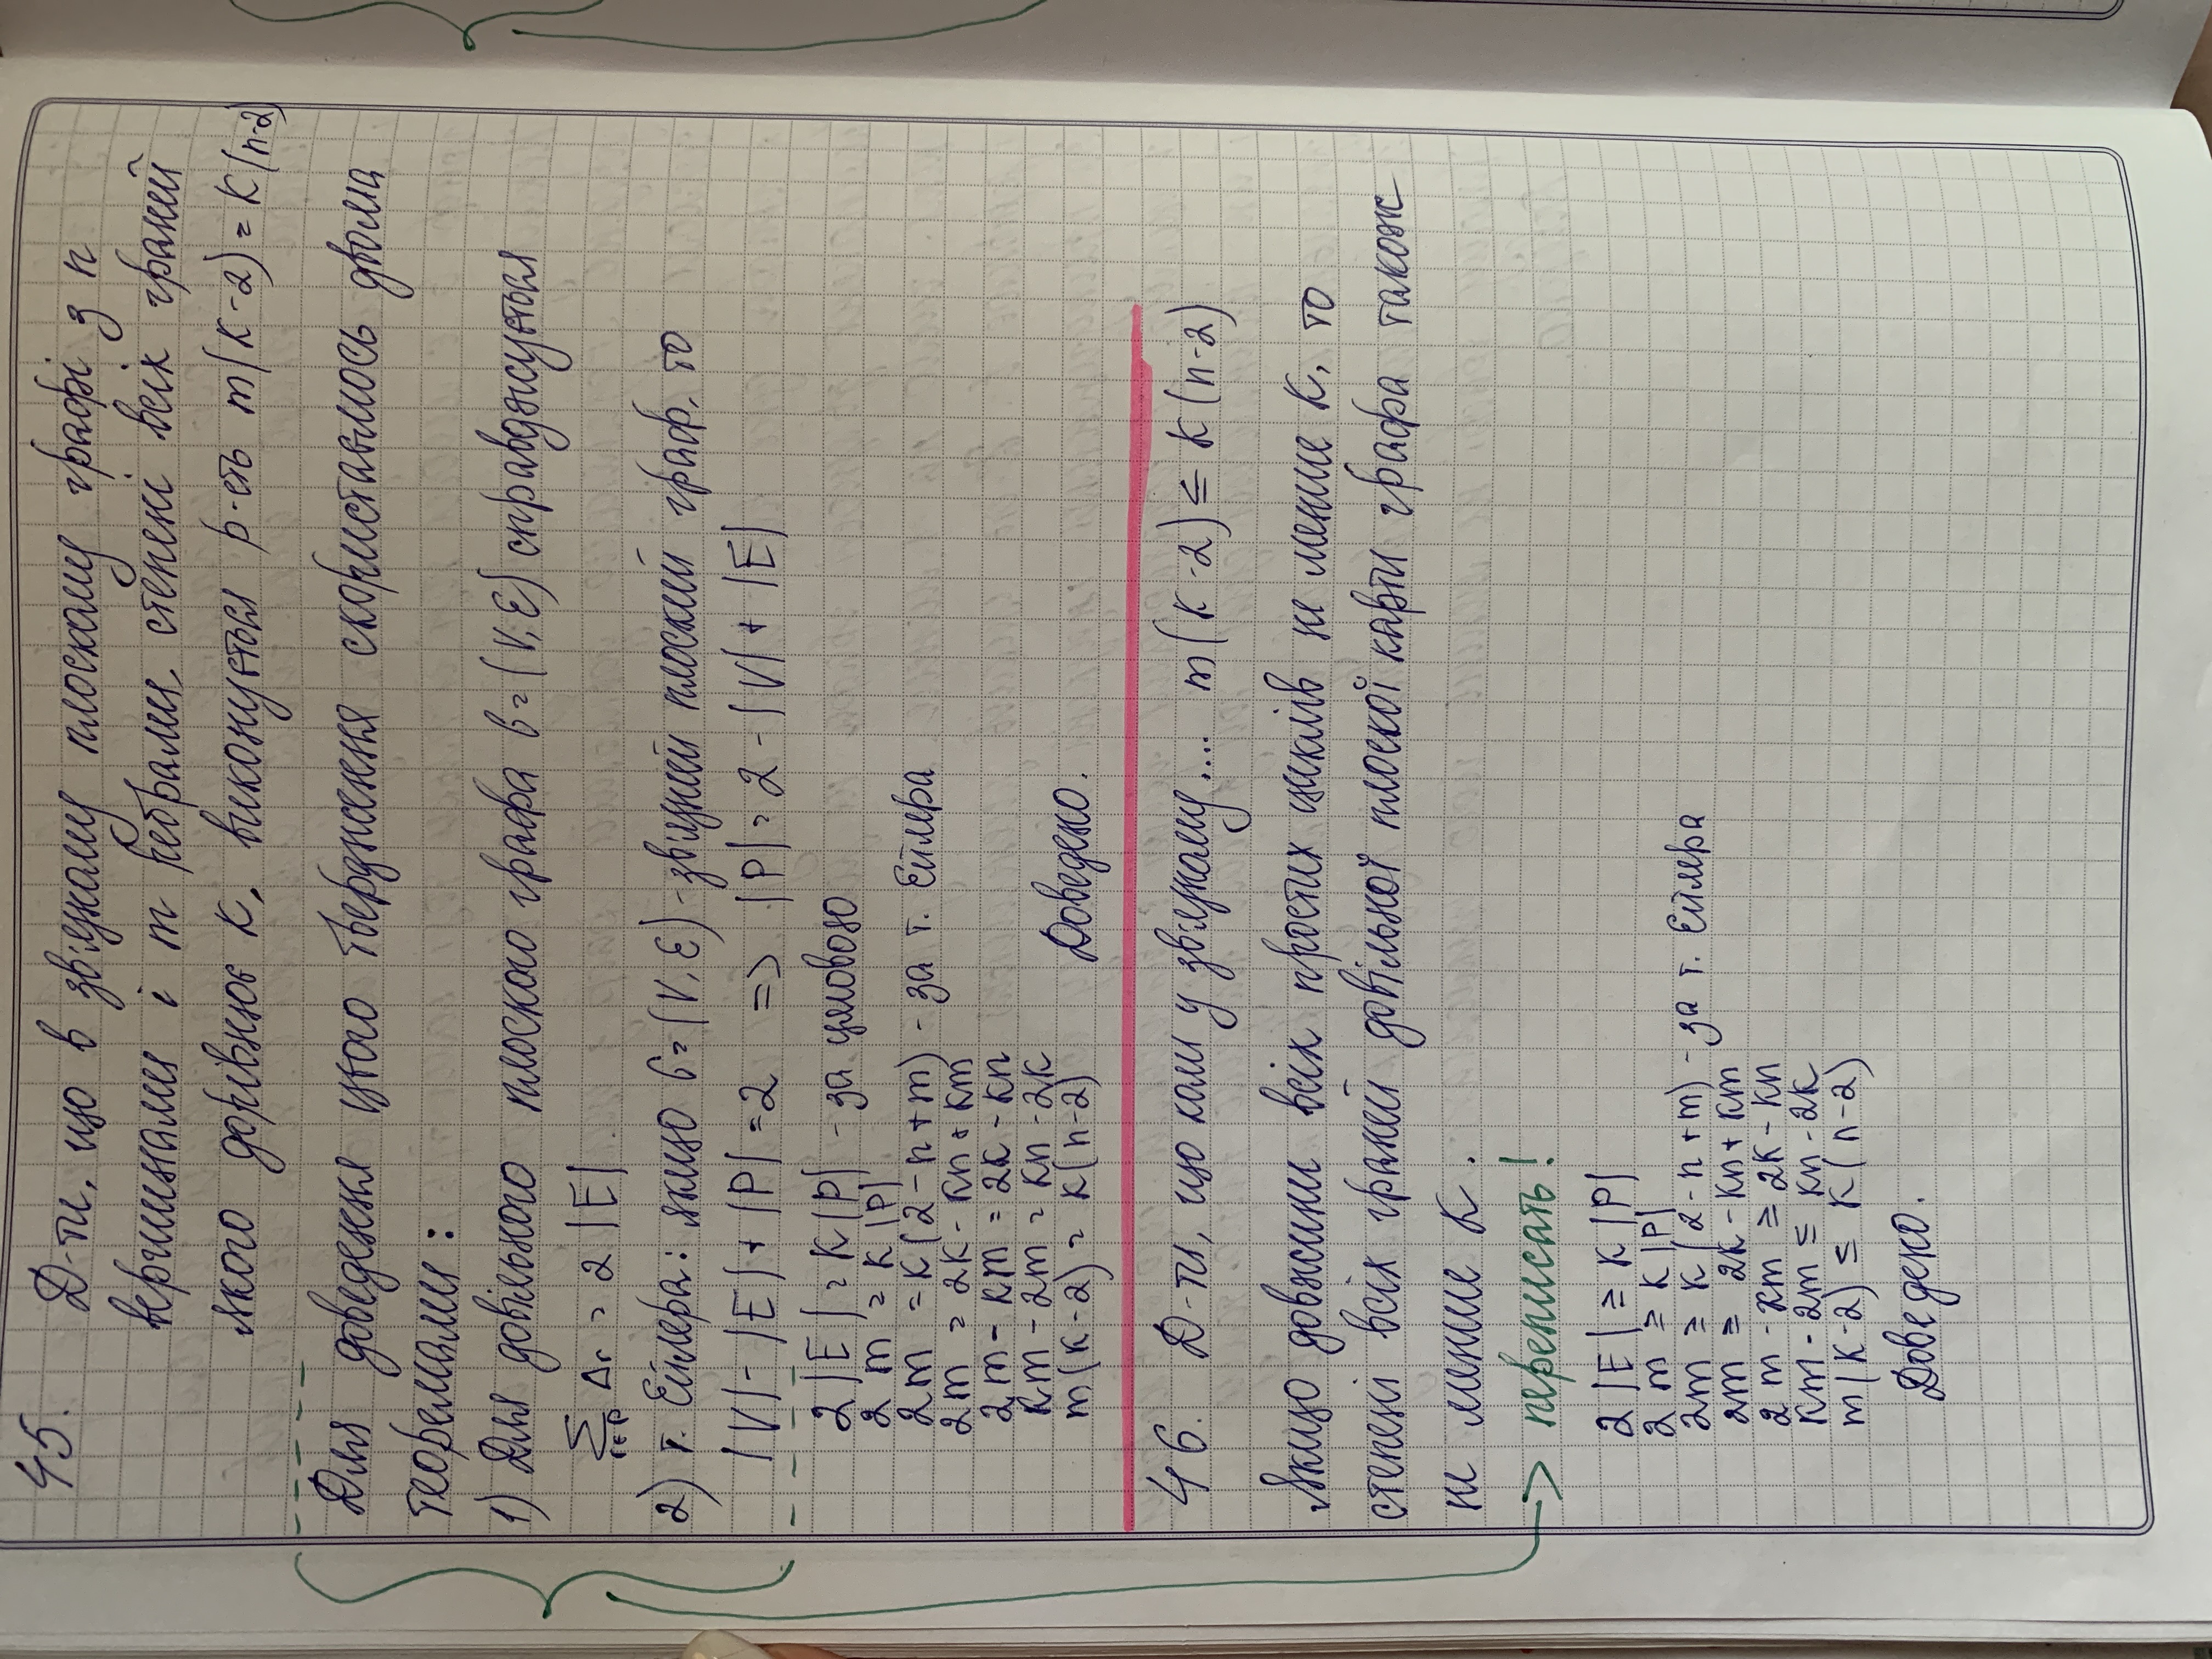 45. Д-ти, що в звʼязному плоскому графі з n
вершинами і m ребрами, степені всіх граней
якого дорівнює к, виконується р-сть m(к-2) = к(n-2)
Для доведення цього твердження скористаємось двома
теоремами:
1) Для довільного плоского графа G=(V,E) справджується
∑ Δr = 2|E|.
r∈P
2) т. Ейлера: якщо G=(V,E) - звʼязний плоский граф, то
|V| - |E| + |P| = 2 => |P| = 2 - |V| + |E|
2|E| = к|P| - за умовою
2m = к|P|
2m = к(2-n+m) - за т. Ейлера
2m = 2к - кn + кm
2m - кm = 2к - кn
кm - 2m = кn - 2к
m(к-2) = к(n-2)
Доведено.
46. Д-ти, що коли у звʼязному.... m(к-2) ≤ к(n-2)
Якщо довжини всіх простих циклів не менше к, то
степені всіх граней довільної плоскої карти графа також
не менше к.
переписать!
2|E| ≥ к|P|
2m ≥ к|P|
2m ≥ к(2-n+m) - за т. Ейлера
2m ≥ 2к - кn + кm
2m - кm ≥ 2к - кn
кm - 2m ≤ кn - 2к
m(к-2) ≤ к(n-2)
Доведено.